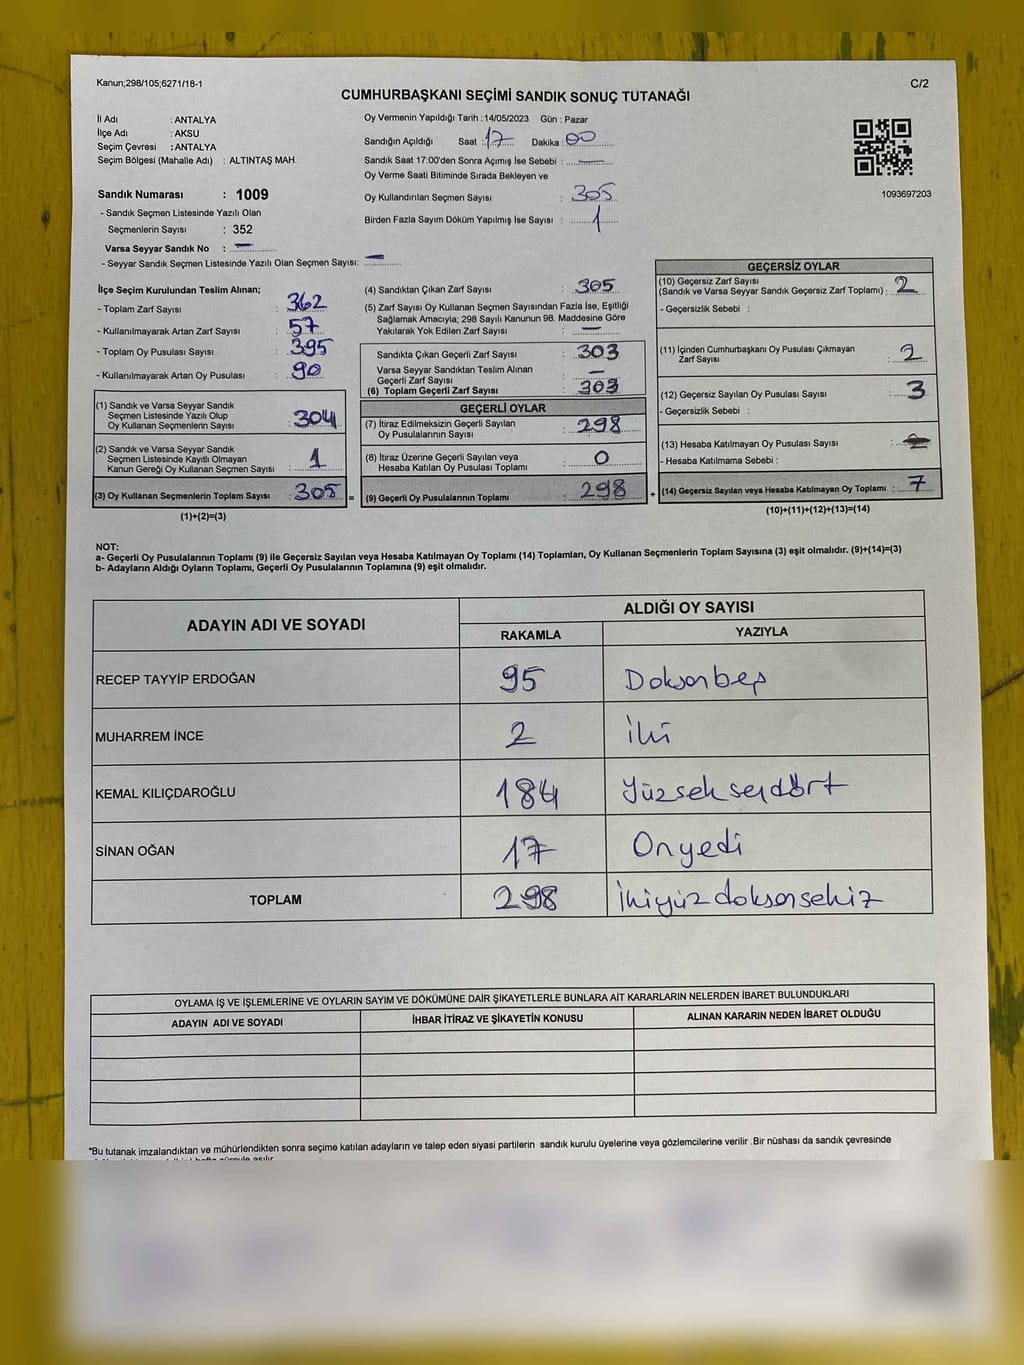 Kanun;298/105;6271/18-1
C/2
CUMHURBAŞKANI SEÇİMİ SANDIK SONUÇ TUTANAĞI
İl Adı : ANTALYA
İlçe Adı : AKSU
Seçim Çevresi : ANTALYA
Seçim Bölgesi (Mahalle Adı) : ALTINTAŞ MAH.
Sandık Numarası : 1009
- Sandık Seçmen Listesinde Yazılı Olan
Seçmenlerin Sayısı : 352
Varsa Seyyar Sandık No : —
- Seyyar Sandık Seçmen Listesinde Yazılı Olan Seçmen Sayısı: —
Oy Vermenin Yapıldığı Tarih : 14/05/2023 Gün : Pazar
Sandığın Açıldığı Saat : 17 Dakika : 00
Sandık Saat 17:00'den Sonra Açımış İse Sebebi : —
Oy Verme Saati Bitiminde Sırada Bekleyen ve
Oy Kullandırılan Seçmen Sayısı : 305
Birden Fazla Sayım Döküm Yapılmış İse Sayısı : 1
1093697203
İlçe Seçim Kurulundan Teslim Alınan;
- Toplam Zarf Sayısı : 362
- Kullanılmayarak Artan Zarf Sayısı : 57
- Toplam Oy Pusulası Sayısı : 395
- Kullanılmayarak Artan Oy Pusulası : 90
(1) Sandık ve Varsa Seyyar Sandık
Seçmen Listesinde Yazılı Olup
Oy Kullanan Seçmenlerin Sayısı : 304
(2) Sandık ve Varsa Seyyar Sandık
Seçmen Listesinde Kayıtlı Olmayan
Kanun Gereği Oy Kullanan Seçmen Sayısı : 1
(3) Oy Kullanan Seçmenlerin Toplam Sayısı : 305 =
(1)+(2)=(3)
(4) Sandıktan Çıkan Zarf Sayısı : 305
(5) Zarf Sayısı Oy Kullanan Seçmen Sayısından Fazla İse, Eşitliği
Sağlamak Amacıyla; 298 Sayılı Kanunun 98. Maddesine Göre
Yakılarak Yok Edilen Zarf Sayısı : —
Sandıkta Çıkan Geçerli Zarf Sayısı : 303
Varsa Seyyar Sandıktan Teslim Alınan
Geçerli Zarf Sayısı : —
(6) Toplam Geçerli Zarf Sayısı : 303
GEÇERLİ OYLAR
(7) İtiraz Edilmeksizin Geçerli Sayılan
Oy Pusulalarının Sayısı : 298
(8) İtiraz Üzerine Geçerli Sayılan veya
Hesaba Katılan Oy Pusulası Toplamı : 0
(9) Geçerli Oy Pusulalarının Toplamı : 298 +
GEÇERSİZ OYLAR
(10) Geçersiz Zarf Sayısı
(Sandık ve Varsa Seyyar Sandık Geçersiz Zarf Toplamı) : 2
- Geçersizlik Sebebi :
(11) İçinden Cumhurbaşkanı Oy Pusulası Çıkmayan
Zarf Sayısı : 2
(12) Geçersiz Sayılan Oy Pusulası Sayısı : 3
- Geçersizlik Sebebi :
(13) Hesaba Katılmayan Oy Pusulası Sayısı :
- Hesaba Katılmama Sebebi :
(14) Geçersiz Sayılan veya Hesaba Katılmayan Oy Toplamı : 7
(10)+(11)+(12)+(13)=(14)
NOT:
a- Geçerli Oy Pusulalarının Toplamı (9) ile Geçersiz Sayılan veya Hesaba Katılmayan Oy Toplamı (14) Toplamları, Oy Kullanan Seçmenlerin Toplam Sayısına (3) eşit olmalıdır. (9)+(14)=(3)
b- Adayların Aldığı Oyların Toplamı, Geçerli Oy Pusulalarının Toplamına (9) eşit olmalıdır.
ADAYIN ADI VE SOYADI
ALDIĞI OY SAYISI
RAKAMLA YAZIYLA
RECEP TAYYİP ERDOĞAN 95 Doksanbeş
MUHARREM İNCE 2 İki
KEMAL KILIÇDAROĞLU 184 Yüzseksendört
SİNAN OĞAN 17 Onyedi
TOPLAM 298 İkiyüzdoksansekiz
OYLAMA İŞ VE İŞLEMLERİNE VE OYLARIN SAYIM VE DÖKÜMÜNE DAİR ŞİKAYETLERLE BUNLARA AİT KARARLARIN NELERDEN İBARET BULUNDUKLARI
ADAYIN ADI VE SOYADI İHBAR İTİRAZ VE ŞİKAYETİN KONUSU ALINAN KARARIN NEDEN İBARET OLDUĞU
*Bu tutanak imzalandıktan ve mühürlendikten sonra seçime katılan adayların ve talep eden siyasi partilerin sandık kurulu üyelerine veya gözlemcilerine verilir .Bir nüshası da sandık çevresinde